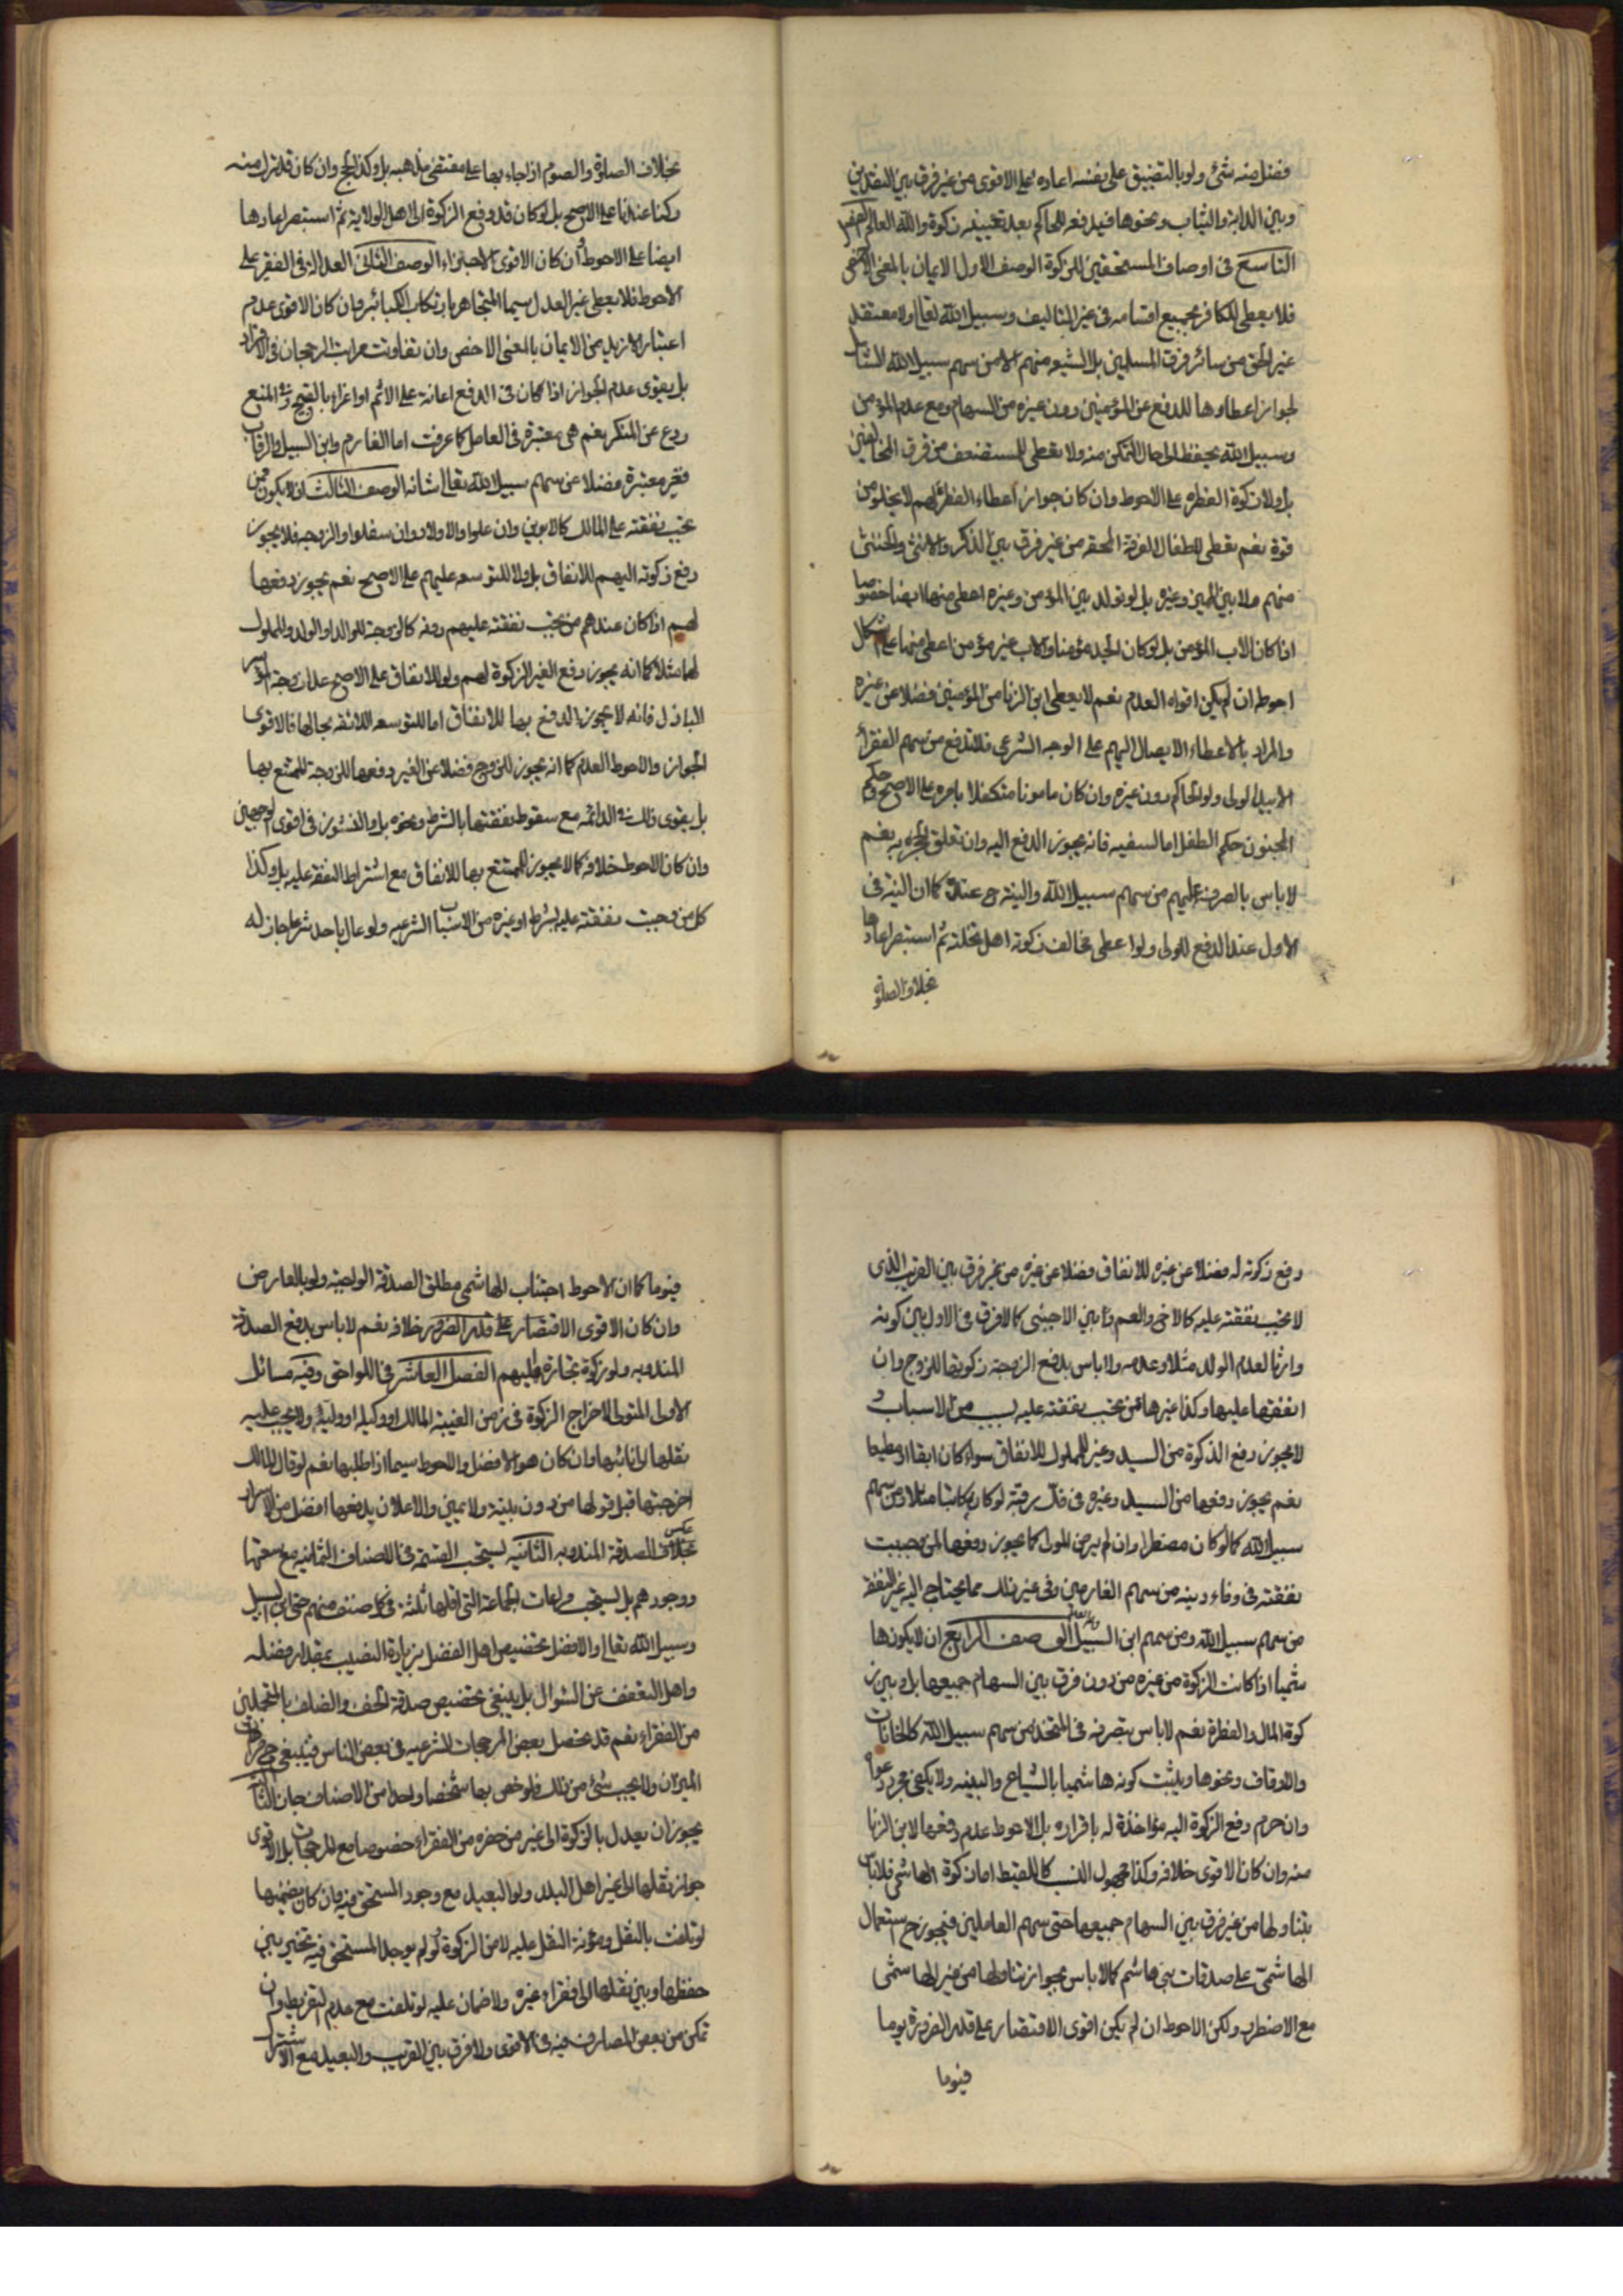 فضل منه شئ ولو بالتضييق على نفسه اعاده على الاقوى من غير فرق بين النقدين
وبين الدابة والثياب ونحوها فيدفعه للحاكم بعد تعيينه زكوة والله العالم الفصل
التاسع فى اوصاف المستحقين للزكوة الوصف الاول الايمان بالمعنى الاخص
فلا يعطى الكافر بجميع اقسامه فى غير التاليف وسبيل الله تعالى ولا معتقد
غير الحق من سائر فرق المسلمين بل الشيعه منهم الا من سهم سبيل الله الشامل
لجواز اعطاوها للدفع عن المؤمنين دون غيره من السهام ومع عدم المؤمن
وسبيل الله يحفظ الى حال التمكن منه ولا يعطى المستضعف من فرق المخالفين
بل ولا زكوة الفطره على الاحوط وان كان جواز اعطاء الفطرة لهم لا يخلو من
قوة نعم يعطى اطفال الفرقة المحقه من غير فرق بين الذكر والانثى والخنثى
منهم ولا بين المميز وغيره بل لو تولد بين المؤمن وغيره اعطى منها ايضا خصوصا
اذا كان الاب المؤمن بل لو كان الجد مؤمنا والاب غير مؤمن اعطى منها على اشكال
احوطه ان لم يكن اقواه العدم نعم لا يعطى ابن الزنا من المؤمنين فضلا عن غيره
والمراد بالاعطاء الايصال اليهم على الوجه الشرعى فلا تدفع من سهم الفقراء
الا بيد الولى ولو الحاكم دون غيره وان كان مامونا متكفلا بامره على الاصح وحكم
المجنون حكم الطفل اما السفيه فانه يجوز الدفع اليه وان تعلق الحجر به نعم
لا باس بالصرف عليهم من سهام سبيل الله والنية ح عنده كما ان النية فى
الاول عند الدفع للولى ولو اعطى مخالف زكوته اهل نحلته ثم استبصر اعادها
بخلاف الصلوة
بخلاف الصلوة والصوم اذا جاء بها على مقتضى مذهبه بل وكذا الحج وان كان قد ترك منه
ركنا عندنا على الاصح بل لو كان قد دفع الزكوة الى اهل الولاية ثم استبصر اعادها
ايضا على الاحوط وان كان الاقوى الاجتزاء الوصف الثانى العدالة فى الفقير على
الاحوط فلا يعطى غير العدل سيما المتجاهر بارتكاب الكبائر وان كان الاقوى عدم
اعتبار الازيد من الايمان بالمعنى الاخص وان تفاوتت مراتب الرجحان فى الافراد
بل يقوى عدم الجواز اذا كان فى الدفع اعانة على الاثم او اغراء بالقبيح وفى المنع
ردع عن المنكر نعم هى معتبرة فى العامل كما عرفت اما الغارم وابن السبيل والرقاب
فغير معتبرة فضلا عن سهام سبيل الله تعالى شانه الوصف الثالث ان لا يكون ممن
تجب نفقته على المالك كالابوين وان علوا والاولاد وان سفلوا والزوجه فلا يجوز
دفع زكوته اليهم للانفاق بل ولا للتوسعه عليهم على الاصح نعم يجوز دفعها
لهم اذا كان عندهم من تجب نفقته عليهم دونه كالزوجة للوالد او الولد والمملوك
لها مثلا كما انه يجوز دفع الغير الزكوة لهم ولو للانفاق على الاصح عدا زوجة الموسر
الباذل فانه لا يجوز الدفع بها للانفاق اما للتوسعه اللائقه بحالها فالاقوى
الجواز والاحوط العدم كما انه يجوز للزوج فضلا عن الغير دفعها للزوجة المتمتع بها
بل يقوى ذلك فى الدائمه مع سقوط نفقتها بالشرط ونحوه بل والنشوز فى اقوى الوجهين
وان كان الاحوط خلافه كما لا يجوز للمتمتع بها للانفاق مع اشتراط النفقه عليه بل وكذا
كل من وجبت نفقته عليه بشرط او غيره من الاسباب الشرعيه ولو عال باحد شرعا جاز له
دفع زكوته له فضلا عن غيره للانفاق فضلا عن غيره من غير فرق بين القريب الذى
لا تجب نفقته عليه كالاخ والعم وبين الاجنبى كما لا فرق فى الاول بين كونه
وارثا لعدم الولد مثلا وعدمه ولا باس بدفع الزوجة زكوتها للزوج وان
انفقها عليها وكذا غيرها ممن تجب نفقته عليه بسبب من الاسباب و
لا يجوز دفع الزكوة من السيد وغيره للمملوك للانفاق سواء كان ابقا او مطيعا
نعم يجوز دفعها من السيد وغيره فى فك رقبته لو كان مكاتبا مثلا او من سهم
سبيل الله كما لو كان مضطرا وان لم يرض المولى كما يجوز دفعها لمن وجبت
نفقته فى وفاء دينه من سهم الغارمين وفى غير ذلك مما يحتاج اليه غير النفقه
من سهم سبيل الله ومن سهم ابن السبيل الوصف الرابع ان لا يكون ها
شميا اذا كانت الزكوة من غيره من دون فرق بين السهام جميعها بل وبين ز
كوة المال والفطرة نعم لا باس بتصرفه فى المتخذ من سهم سبيل الله كالخانات
والاوقاف ونحوها ويثبت كونه هاشميا بالشياع والبينه ولا يكفى مجرد دعواه
وان حرم دفع الزكوة اليه مؤاخذة له باقراره بل الاحوط عدم دفعها لابن الزنا
منه وان كان الاقوى خلافه وكذا مجهول النسب كاللقيط اما زكوة الهاشمى فلا باس
بتناولها من غير فرق بين السهام جميعها حتى سهم العاملين فيجوز ح استعمال
الهاشمى على صدقات بنى هاشم كما لا باس بجواز تناولها من غير الهاشمى
مع الاضطرار ولكن الاحوط ان لم يكن اقوى الاقتصار على قدر الضرورة يوما
فيوما
فيوما كما ان الاحوط اجتناب الهاشمى مطلق الصدقة الواجبة ولو بالعارض
وان كان الاقوى الاقتصار على قدر الضرور خلافه نعم لا باس بدفع الصدقة
المندوبه ولو زكوة تجارة عليهم الفصل العاشر فى اللواحق وفيه مسائل
الاولى المتولى لاخراج الزكوة فى زمن الغيبة المالك او وكيله او وليه ولا يجب عليه
نقلها الى نائبها وان كان هو الافضل والاحوط سيما اذا طلبها نعم لو قال المالك
اخرجتها قبل قولها من دون بينة ولا يمين والاعلان بدفعها افضل من الاسرار
عكس
بخلاف الصدقة المندوبه الثانيه يستحب القسمة فى الاصناف الثمانيه مع سعتها
ووجودهم بل يستحب مراعات الجماعة التى اقلها ثلثه فى كل صنف منهم حتى ابن السبيل
وسبيل الله تعالى والافضل تخصيص اهل الفضل بزيادة النصيب بمقدار فضله
واهل التعفف عن السؤال بل ينبغى تخصيص صدقة الخف والظلف بالمتجملين
من الفقراء نعم قد تحصل بعض المرجحات الشرعيه فى بعض الناس فينبغى ح مراعات
الميزان ولا يجب شئ من ذلك فلو خص بها شخصا واحدا من الاصناف جاز الثالثه
يجوز ان يعدل بالزكوة الى غير من حضره من الفقراء خصوصا مع المرجحات بل الاقوى
جواز نقلها الى غير اهل البلد ولو البعيد مع وجود المستحق فيه وان كان يضمنها
لو تلفت بالنقل ومؤنة النقل عليه لا من الزكوة ولو لم يوجد المستحق فيه تخير بين
حفظها وبين نقلها الى فقراء غيره ولا ضمان عليه لو تلفت مع عدم التفريط وان
تمكن من بعض المصارف فيه فى الاقوى ولا فرق بين القريب والبعيد مع الاشتراك